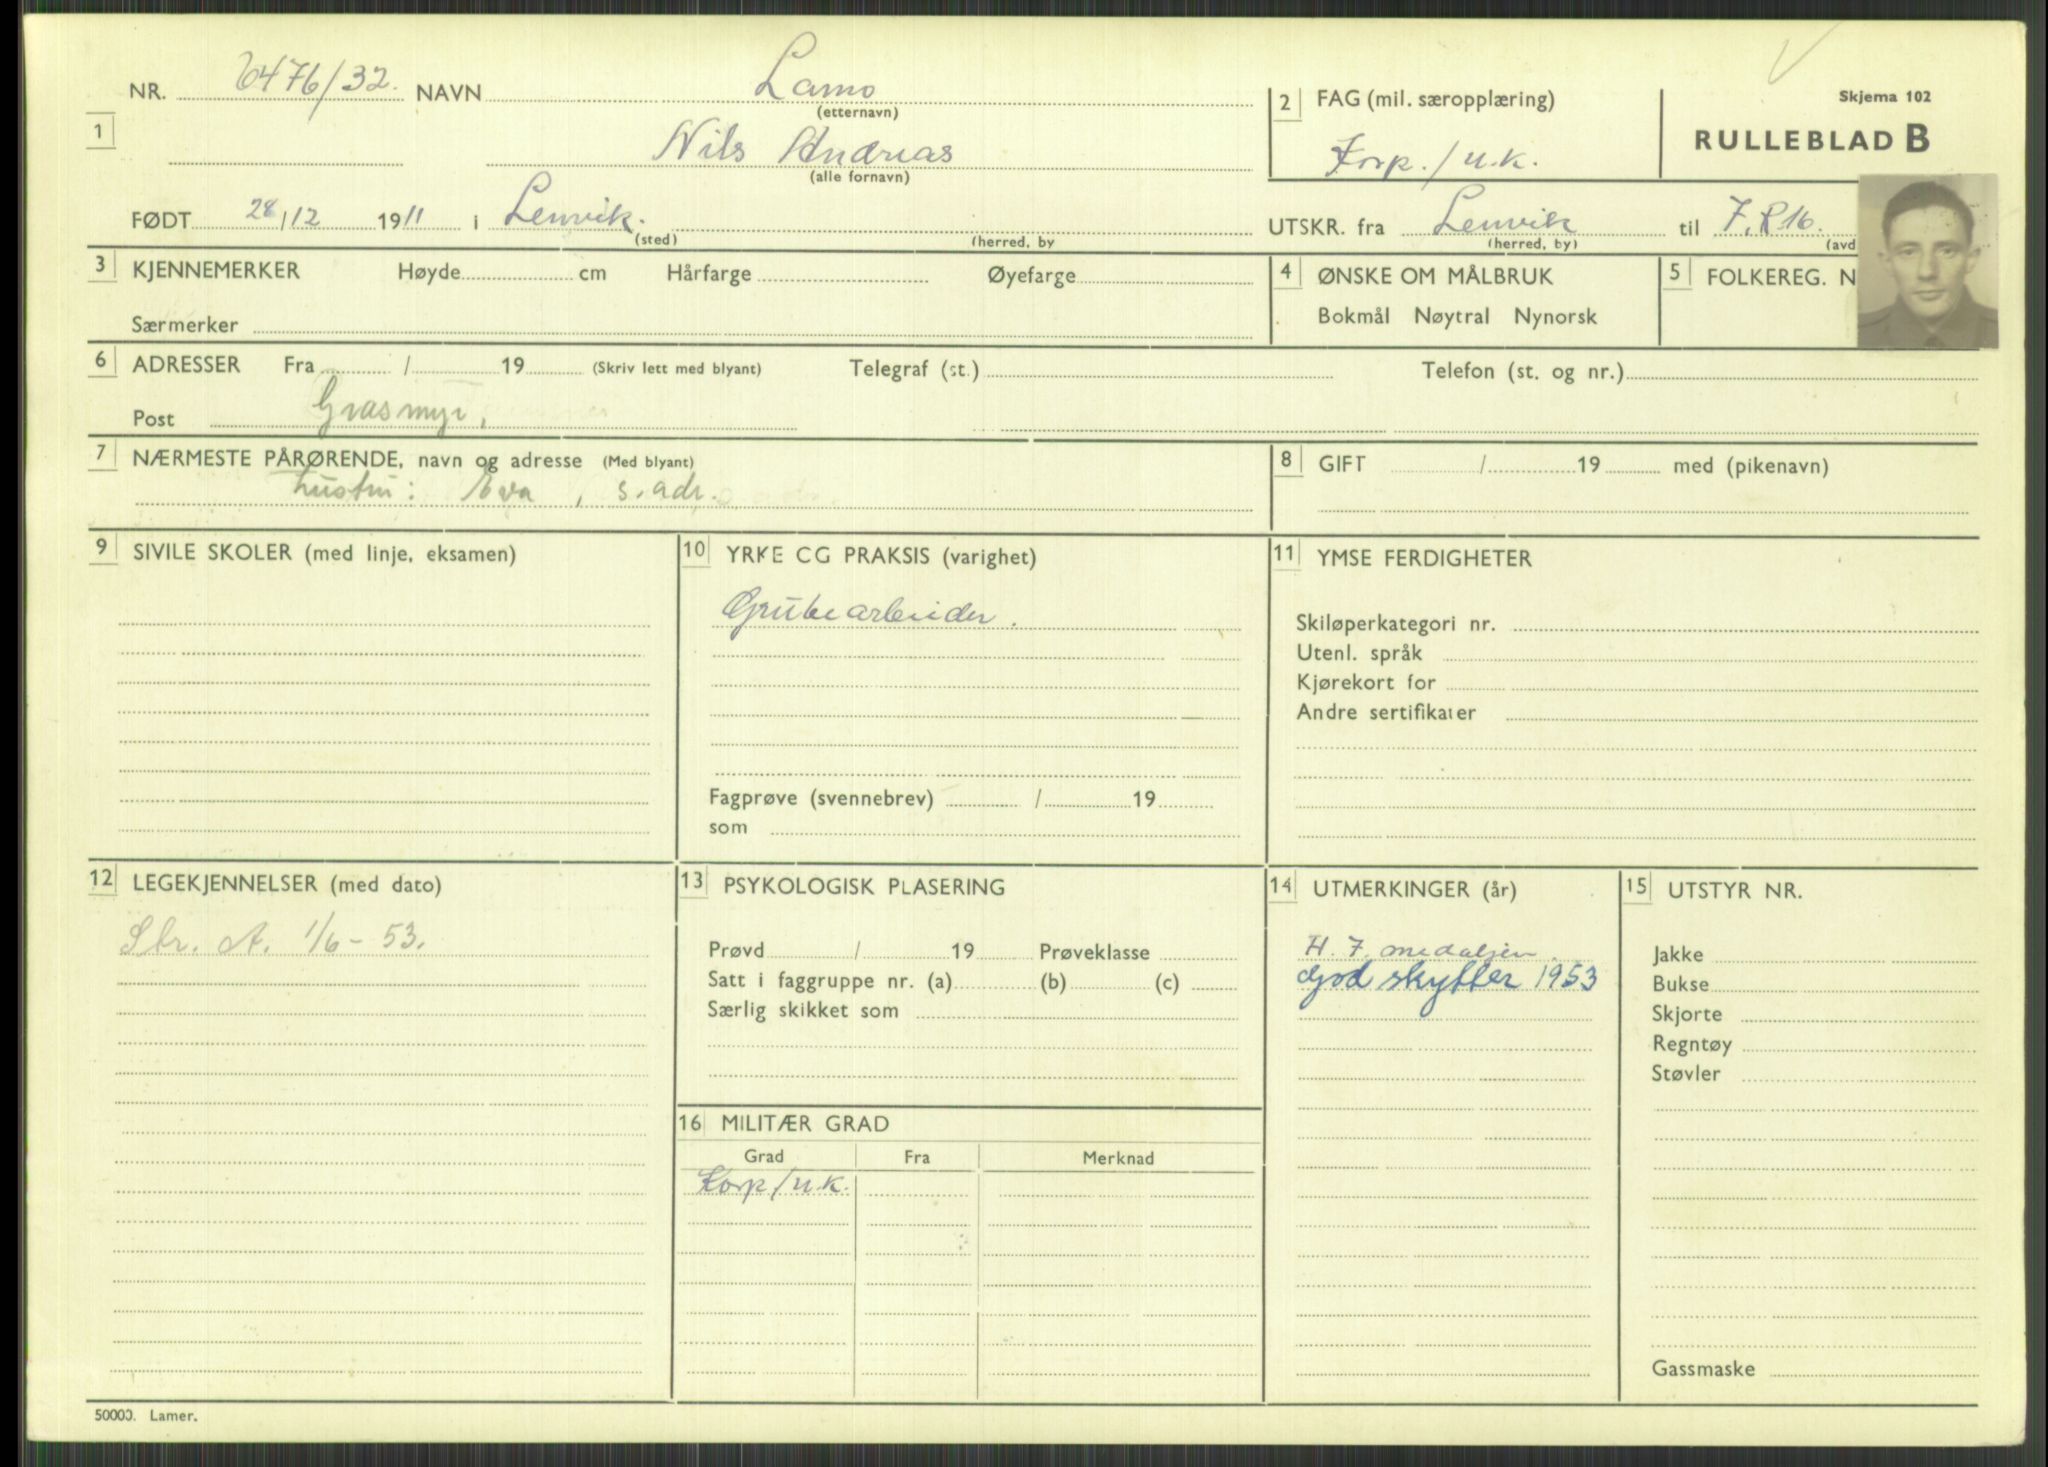 Skjema 102
RULLEBLAD B
1 NR. 6476/32. NAVN Lamo
(etternavn)
Nils Andreas
(alle fornavn)
FØDT 28/12 1911 i Lenvik.
(sted) (herred, by
2 FAG (mil. særopplæring)
Korp./u.k.
UTSKR. fra Lenvik til 7.R16.
(herred, by) (avd
3 KJENNEMERKER Høyde cm Hårfarge Øyefarge
Særmerker
4 ØNSKE OM MÅLBRUK
Bokmål Nøytral Nynorsk
5 FOLKEREG. N
6 ADRESSER Fra / 19 (Skriv lett med blyant) Telegraf (st.) Telefon (st. og nr.)
Post Grasmyr,
7 NÆRMESTE PÅRØRENDE, navn og adresse (Med blyant)
hustru: Eva, s. adr.
8 GIFT / 19 med (pikenavn)
9 SIVILE SKOLER (med linje, eksamen)
10 YRKE CG PRAKSIS (varighet)
Grubearbeider.
Fagprøve (svennebrev) / 19
som
11 YMSE FERDIGHETER
Skiløperkategori nr.
Utenl. språk
Kjørekort for
Andre sertifikater
12 LEGEKJENNELSER (med dato)
Str. A. 1/6-53.
13 PSYKOLOGISK PLASERING
Prøvd / 19 Prøveklasse
Satt i faggruppe nr. (a) (b) (c)
Særlig skikket som
14 UTMERKINGER (år)
H. 7. medaljen.
God skytter 1953
15 UTSTYR NR.
Jakke
Bukse
Skjorte
Regntøy
Støvler
Gassmaske
16 MILITÆR GRAD
Grad Fra Merknad
Korp/u.k.
50000. Lamer.